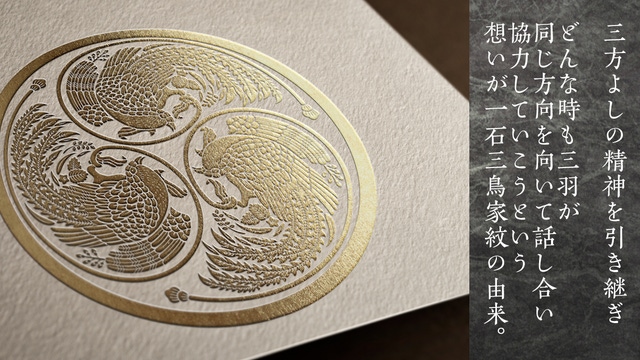 三方よしの精神を引き継ぎ
どんな時も三羽が
同じ方向を向いて話し合い
協力していこうという
想いが一石三鳥家紋の由来。